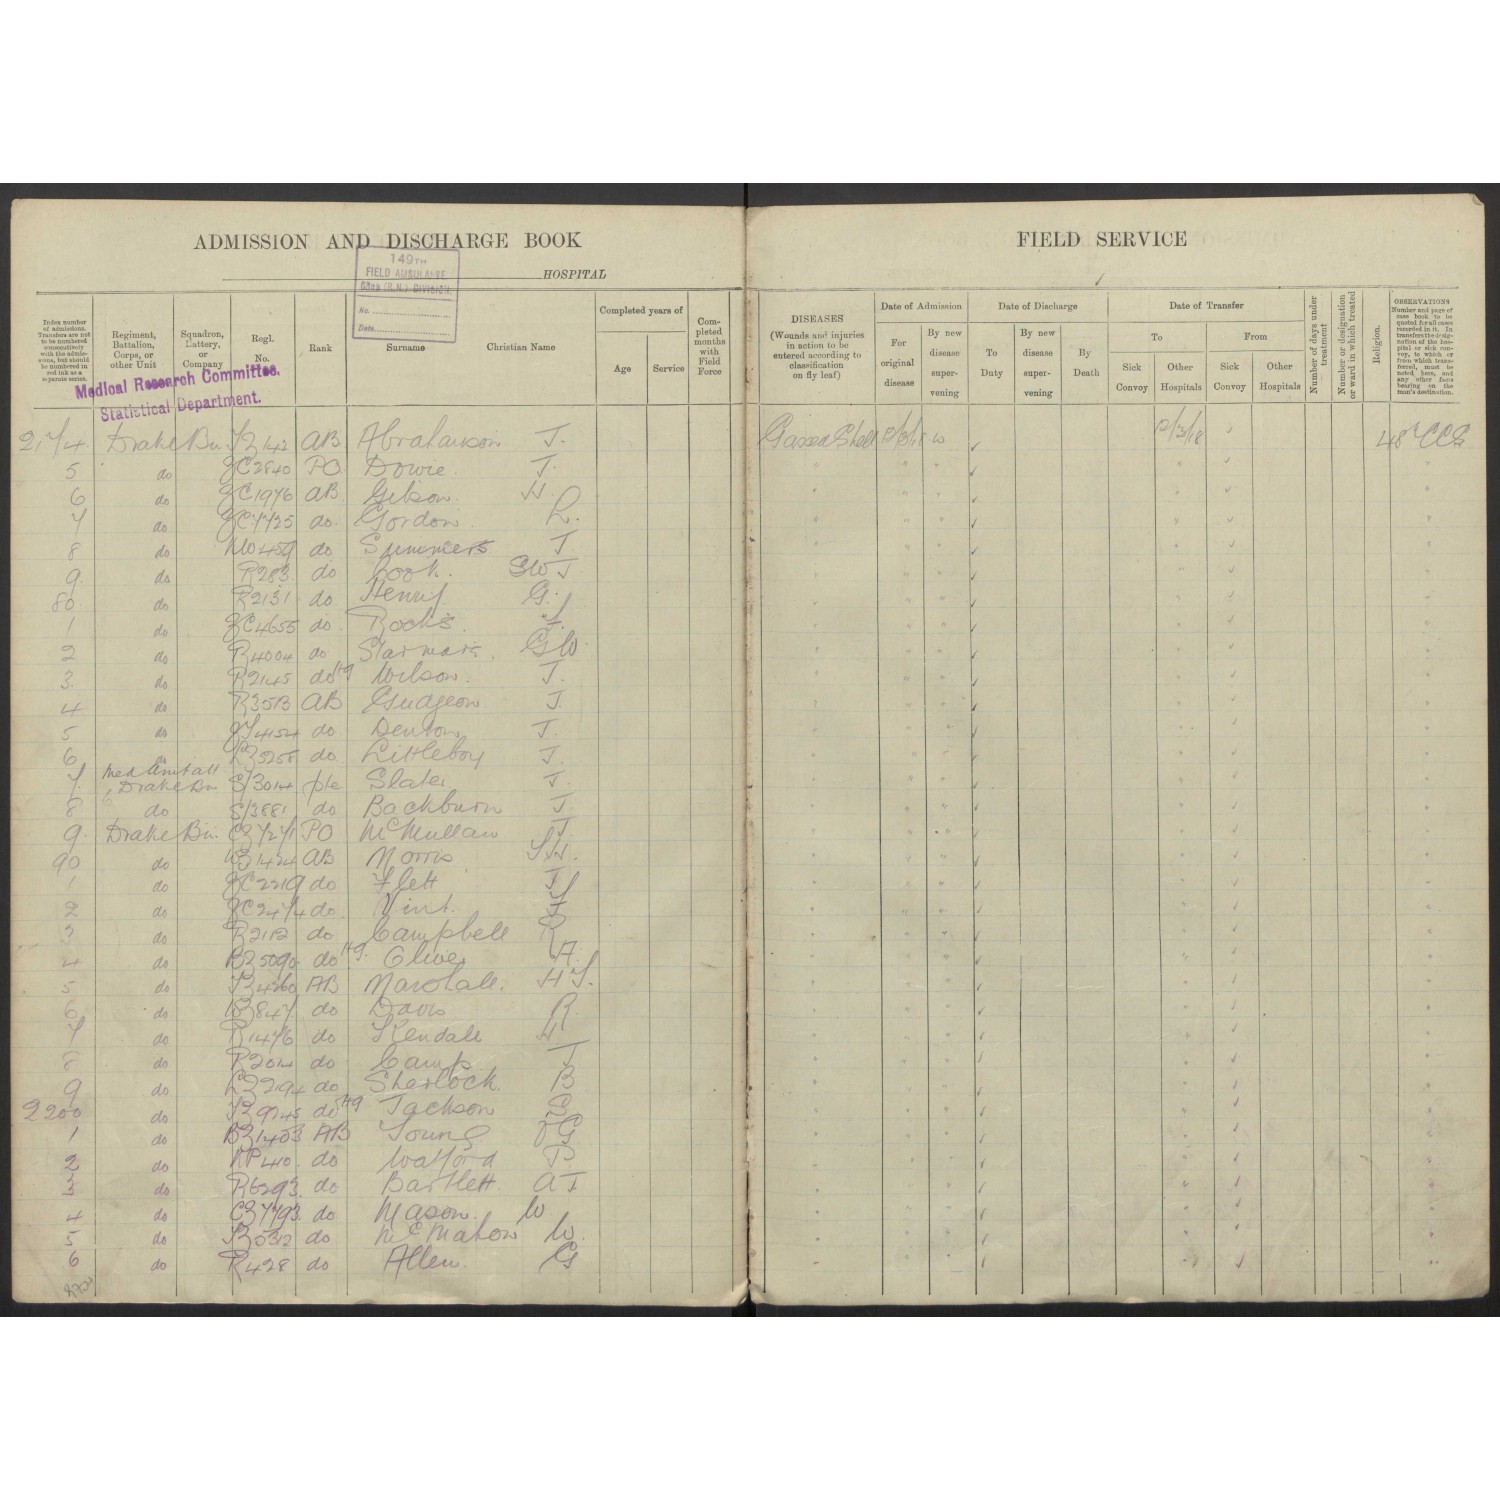 ADMISSION AND DISCHARGE BOOK
HOSPITAL
149TH
FIELD AMBULANCE
63RD (R.N.) DIVISION.
No.
Date
Index number of admissions. Transfers are not to be numbered consecutively with the admissions, but should be numbered in red ink as a separate series.
Regiment, Battalion, Corps, or other Unit
Squadron, Battery, or Company
Regl. No.
Rank
Surname
Christian Name
Completed years of
Age
Service
Completed months with Field Force
Medical Research Committee.
Statistical Department.
FIELD SERVICE
DISEASES
(Wounds and injuries in action to be entered according to classification on fly leaf)
Date of Admission
For original disease
By new disease supervening
Date of Discharge
To Duty
By new disease supervening
By Death
Date of Transfer
To
From
Sick Convoy
Other Hospitals
Sick Convoy
Other Hospitals
Number of days under treatment
Number or designation of ward in which treated
Religion.
OBSERVATIONS
Number and page of case book to be quoted for all cases recorded in it. In transfers the designation of the hospital or sick convoy, to which or from which transferred, must be noted here, and any other facts bearing on the man's destination.
2174 Drake Bn. AB Abrahamson J. Gassed Shell 12/3/18 12/3/18 48 CCS
5 do 2840 PO Dowie. J.
6 do 1976 AB Gibson. H
7 do do Gordon L.
8 do do Summers J
9. do R283. do Cook.
80. do R2131 do Henry G.
1 do 4655 do
2 do R4004 do G W.
3. do R2145 do Wilson. J.
4 do AB Gudgeon J.
5 do do Denton J.
6 do 5258 do Littleboy J.
7. Drake Bn S/3014 pte Slater J.
8 do S/3881 do Backburn J.
9. Drake Bn. PO McMullan J.
90 do 1424 AB Norris
1 do 2219 do Flett J
2 do do Vint.
3 do do Campbell R
4 do do Oliver A.
5 do AB
6 do do Davis R
7 do R1476 do Kendale
8 do R2014 do Camp J
9 do do Sherlock. B
2200 do do Jackson S
1 do AB Young G
2 do do Watford P
3 do R6293. do Bartlett A J
4 do do Mason. W
5 do do McMahon W.
6 do R428 do Allen. G